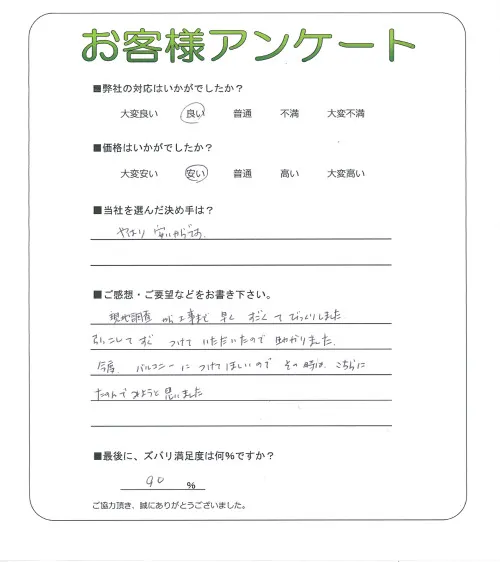 お客様アンケート
■弊社の対応はいかがでしたか？
大変良い 良い 普通 不満 大変不満
■価格はいかがでしたか？
大変安い 安い 普通 高い 大変高い
■当社を選んだ決め手は？
やはり 安いからです。
■ご感想・ご要望などをお書き下さい。
現地調査 から工事まで 早く すごくて びっくりしました
引っこしして すぐ つけて いただいたので 助かりました。
今度 バルコニーに つけてほしいので その時は、こちらに
たのんでみようと 思いました
■最後に、ズバリ満足度は何％ですか？
90 ％
ご協力頂き、誠にありがとうございました。